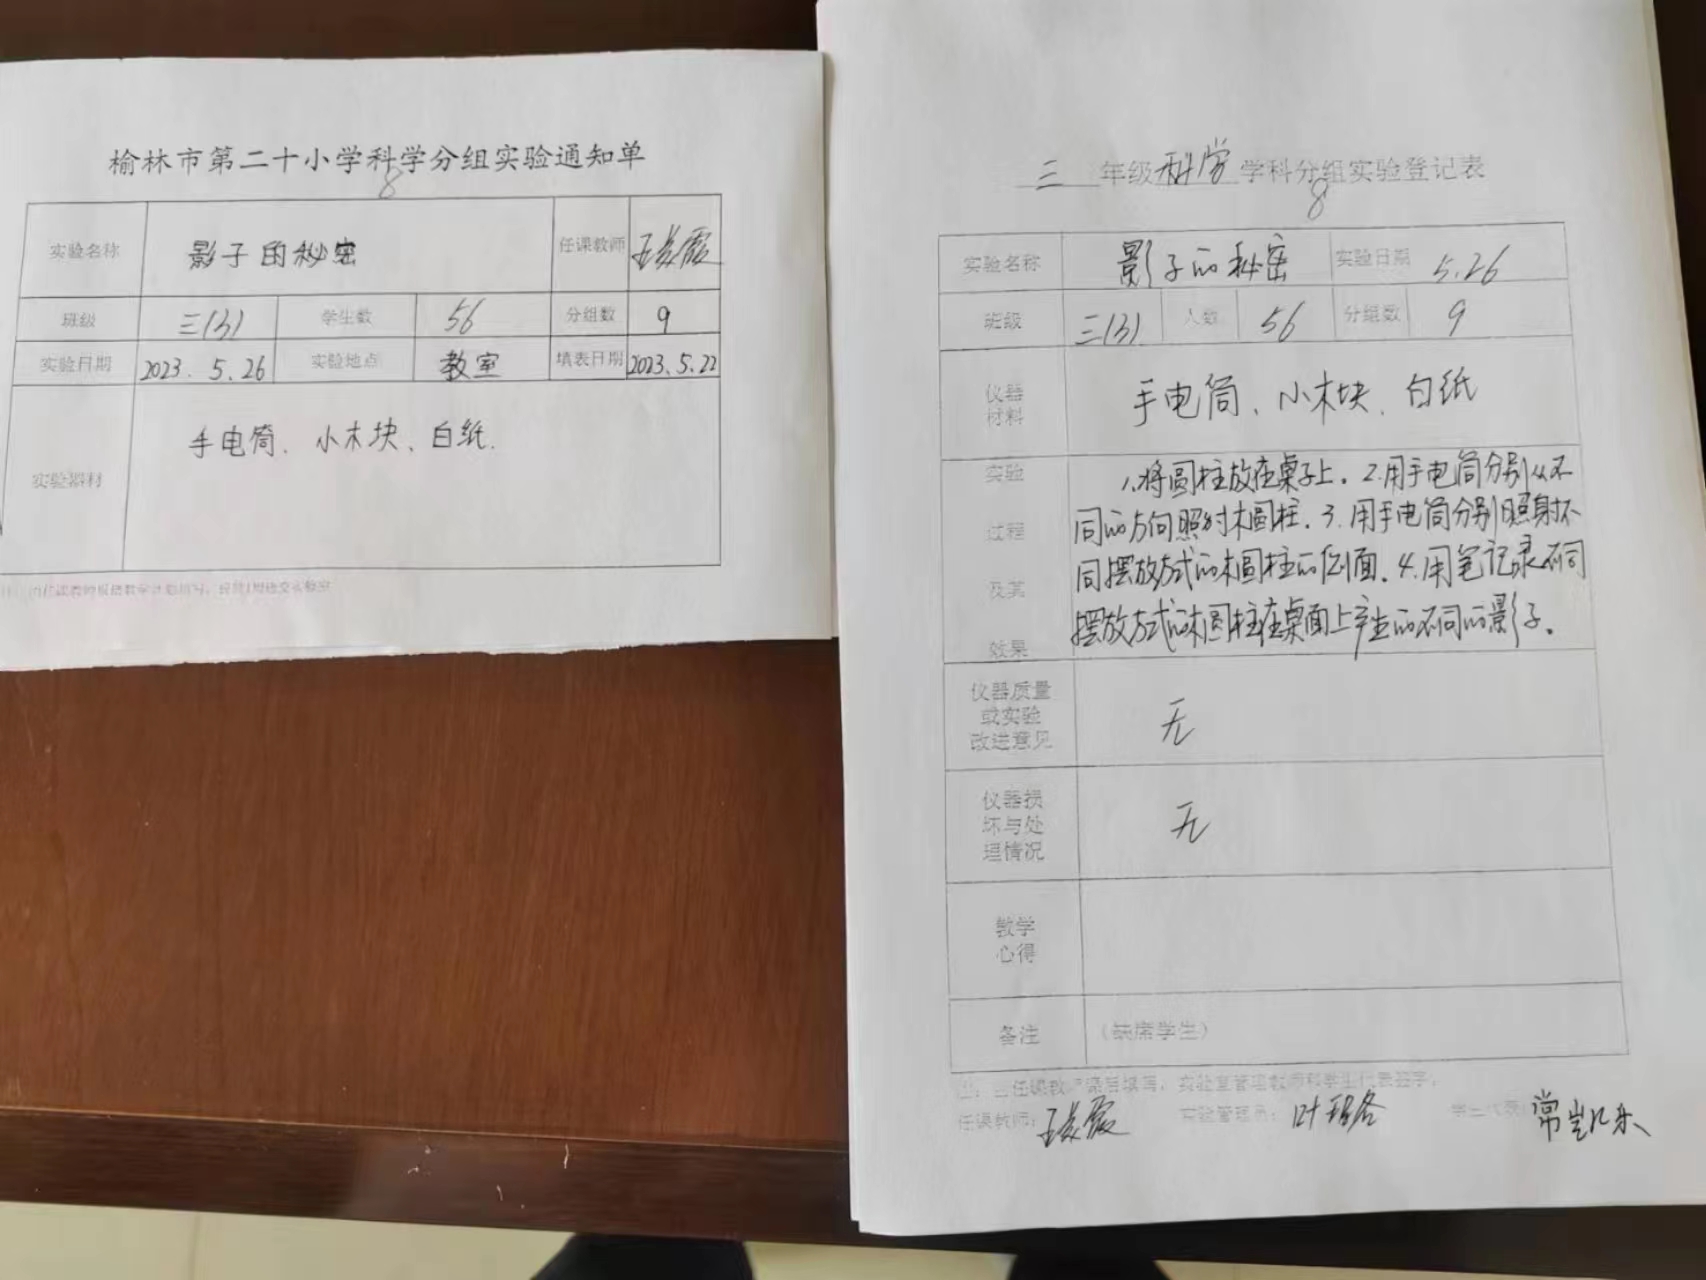 榆林市第二十小学科学分组实验通知单
8
实验名称 影子的秘密 任课教师
班级 三(3) 学生数 56 分组数 9
实验日期 2023.5.26 实验地点 教室 填表日期 2023.5.22
实验器材 手电筒、小木块、白纸.
三 年级 科学 学科分组实验登记表
8
实验名称 影子的秘密 实验日期 5.26
班级 三(3) 人数 56 分组数 9
仪器
材料
手电筒、小木块、白纸
实验
过程
及其
效果
1.将圆柱放在桌子上。2.用手电筒分别从不
同的方向照射木圆柱.3.用手电筒分别照射不
同摆放方式的木圆柱的侧面.4.用笔记录不同
摆放方式的木圆柱在桌面上产生的不同的影子。
仪器质量
或实验
改进意见
无
仪器损
坏与处
理情况
无
教学
心得
备注 (缺席学生)
注:由任课教师课后填写,实验室管理教师和学生代表签字。
任课教师: 实验管理员: 学生代表: